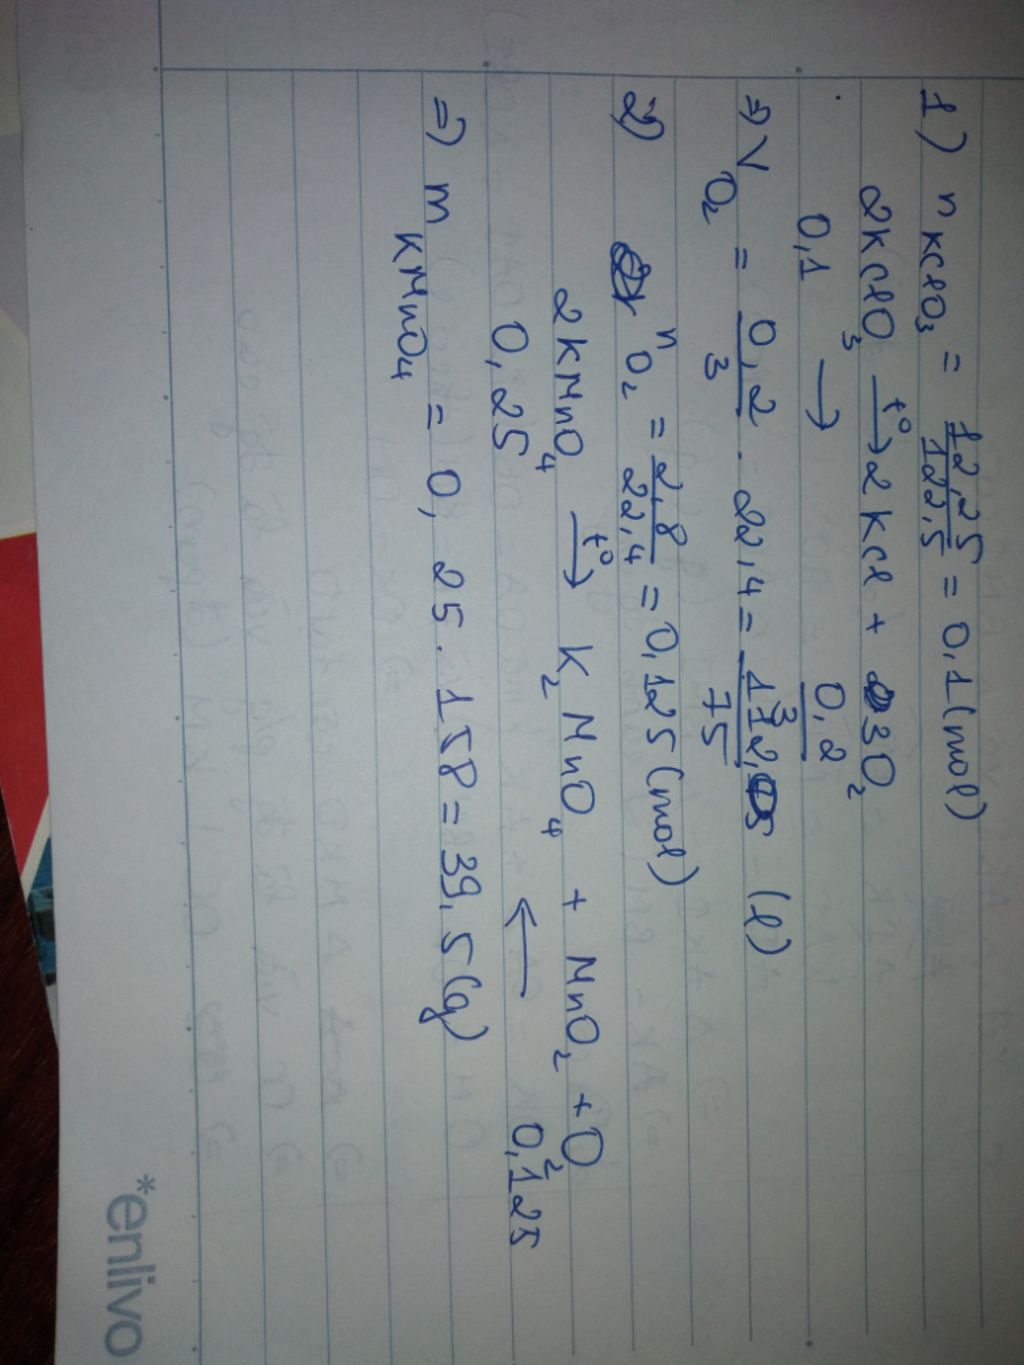 1) nKClO3 = 12,25/122,5 = 0,1 (mol)
2KClO3 t°→ 2KCl + 3O2
0,1 → 0,2/3
⇒ VO2 = 0,2/3 . 22,4 = 112/75 (l)
2) nO2 = 2,8/22,4 = 0,125 (mol)
2KMnO4 t°→ K2MnO4 + MnO2 + O2
0,25 ← 0,125
=) mKMnO4 = 0,25 . 158 = 39,5 (g)
*enlivo